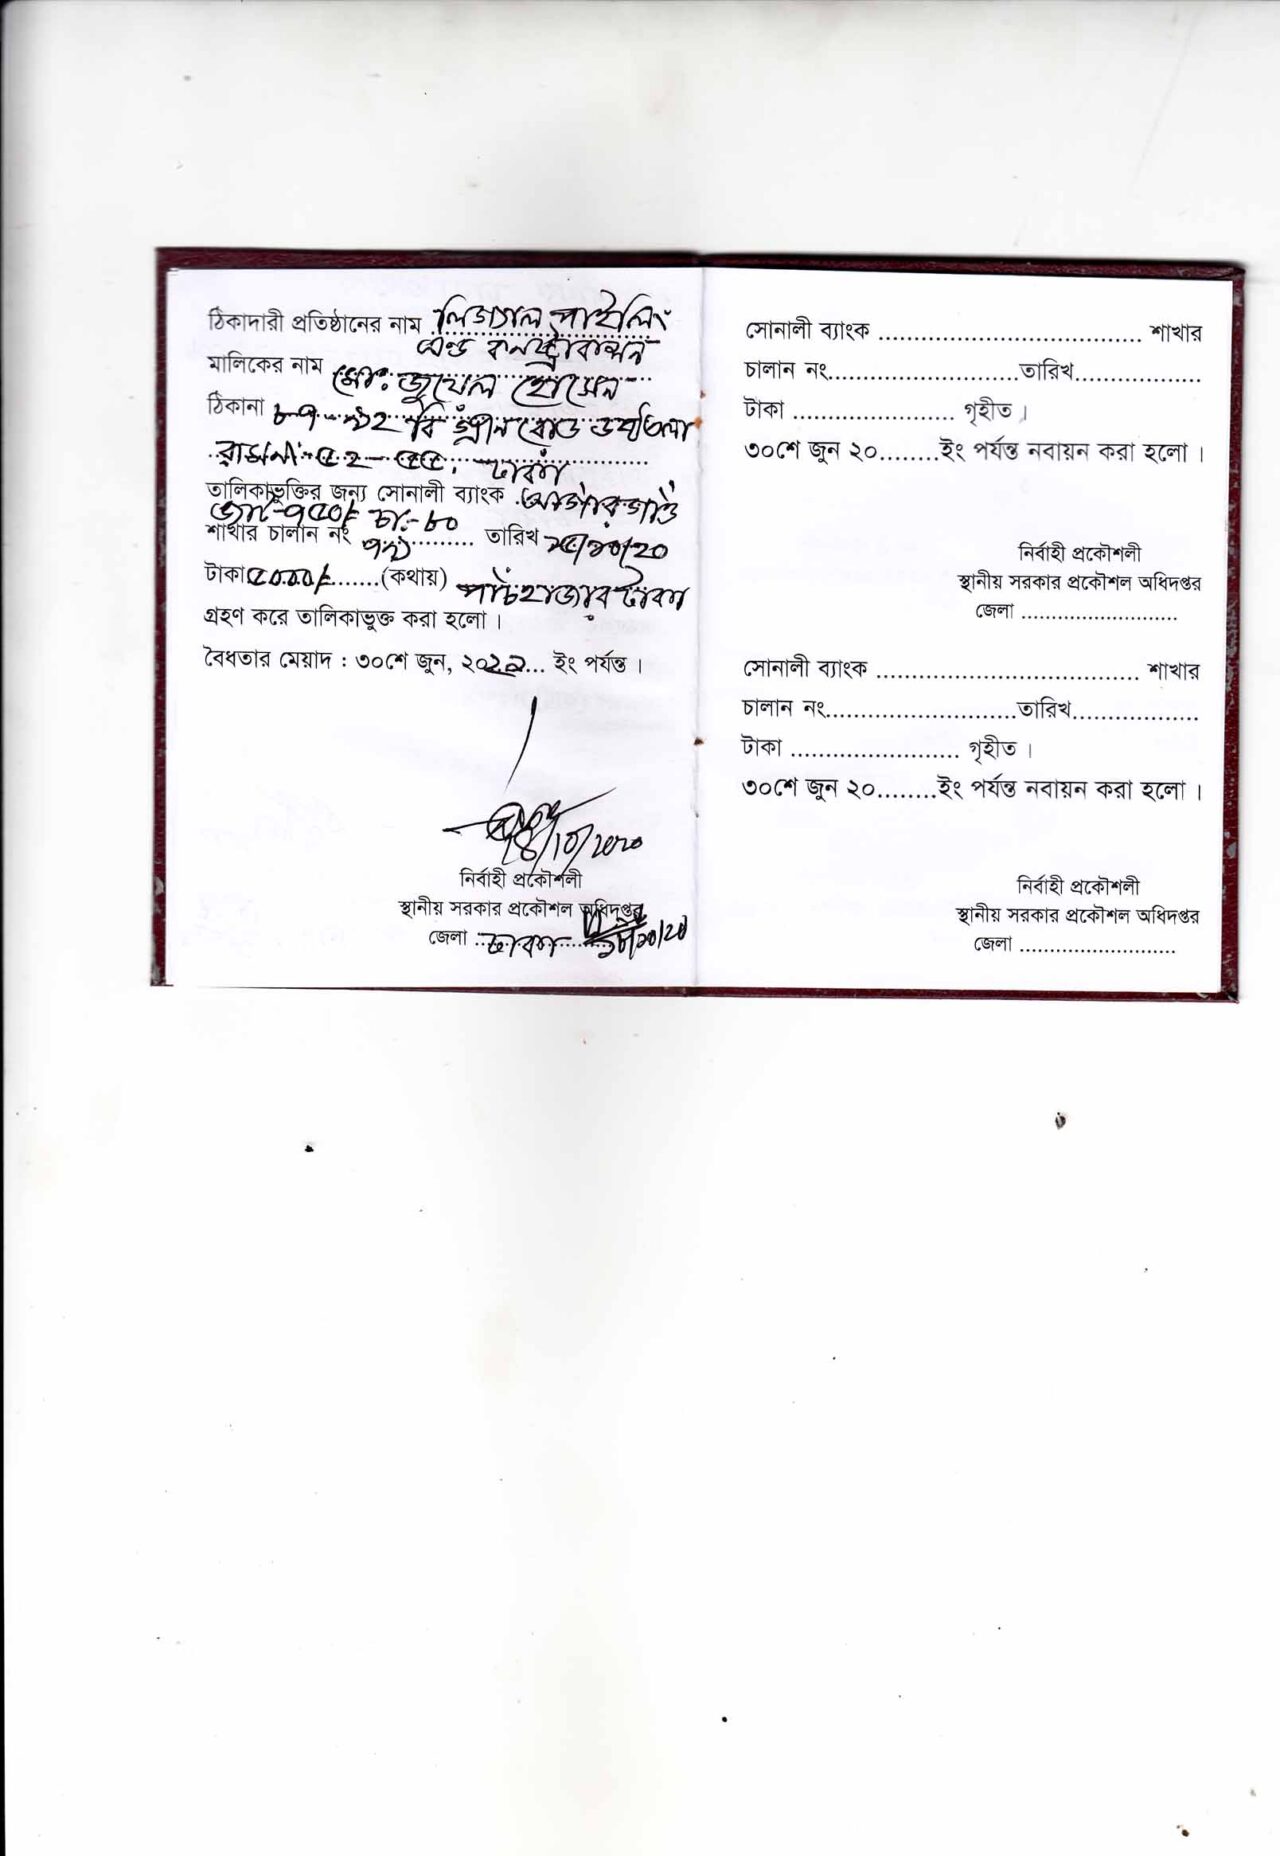 ঠিকাদারী প্রতিষ্ঠানের নাম লিগ্যাল পাইলিং
এন্ড কনস্ট্রাকশন
মালিকের নাম মো: জুয়েল হোসেন
ঠিকানা ৮৭-৯২ বি গ্রীন রোড
৫২-৫৫. ঢাকা
তালিকাভুক্তির জন্য সোনালী ব্যাংক আগারগাঁও
৭৫০/- চা:-৮০
শাখার চালান নং ৭৯ তারিখ ১৫/১০/২০
টাকা ৫০০০/- (কথায়) পাঁচ হাজার টাকা
গ্রহণ করে তালিকাভুক্ত করা হলো ।
বৈধতার মেয়াদ : ৩০শে জুন, ২০২১... ইং পর্যন্ত ।
18/10/2020
নির্বাহী প্রকৌশলী
স্থানীয় সরকার প্রকৌশল অধিদপ্তর
জেলা ..ঢাকা ১৮/১০/২০
সোনালী ব্যাংক ...................................... শাখার
চালান নং...........................তারিখ..................
টাকা ....................... গৃহীত ।
৩০শে জুন ২০........ইং পর্যন্ত নবায়ন করা হলো ।
নির্বাহী প্রকৌশলী
স্থানীয় সরকার প্রকৌশল অধিদপ্তর
জেলা ..........................
সোনালী ব্যাংক ...................................... শাখার
চালান নং...........................তারিখ..................
টাকা ........................ গৃহীত ।
৩০শে জুন ২০........ইং পর্যন্ত নবায়ন করা হলো ।
নির্বাহী প্রকৌশলী
স্থানীয় সরকার প্রকৌশল অধিদপ্তর
জেলা ..........................